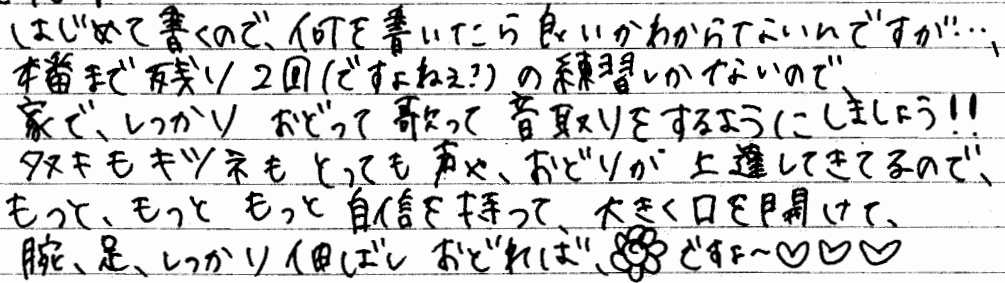 はじめて書くので、何を書いたら良いかわからないんですが…、
本番まで残り2回(ですよねぇ?)の練習しかないので、
家で、しっかり おどって 歌って 音取りをするようにしましょう!!
タヌキもキツネも とっても 声や、おどりが 上達してきてるので、
もっと、もっと もっと 自信を持って、大きく口を開けて、
腕、足、しっかり伸ばし おどれば、ですよ〜♡♡♡